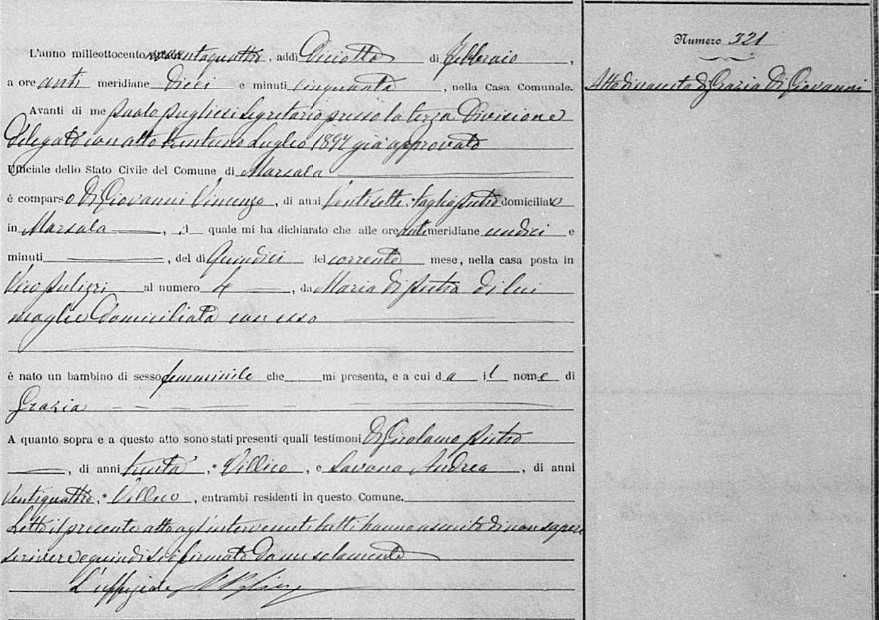 Numero 321
Atto di nascita di Grazia Di Giovanni
L'anno milleottocento novantaquattro, addì Diciotto di febbraio,
a ore anti meridiane Dieci e minuti Cinquanta, nella Casa Comunale.
Avanti di me Paolo Pugliesi Segretario presso la terza Divisione
Delegato con atto trentuno Luglio già approvato
Ufficiale dello Stato Civile del Comune di Marsala
è comparso Di Giovanni Vincenzo, di anni Ventisette, tagliapietre domiciliato
in Marsala, il quale mi ha dichiarato che alle ore anti meridiane undici e
minuti, del dì Quindici del corrente mese, nella casa posta in
Vico al numero 4, da Maria Di Pietra di lui
moglie domiciliata con esso
è nato un bambino di sesso femminile che mi presenta, e a cui dà il nome di
Grazia
A quanto sopra e a questo atto sono stati presenti quali testimoni Di Girolamo Pietro
, di anni trenta, Villico, e Savona Andrea, di anni
Ventiquattro, Villico, entrambi residenti in questo Comune.
Letto il presente atto agl'intervenuti tutti hanno asserito di non sapere
scrivere e quindi si è firmato da me solamente
L'uffiziale